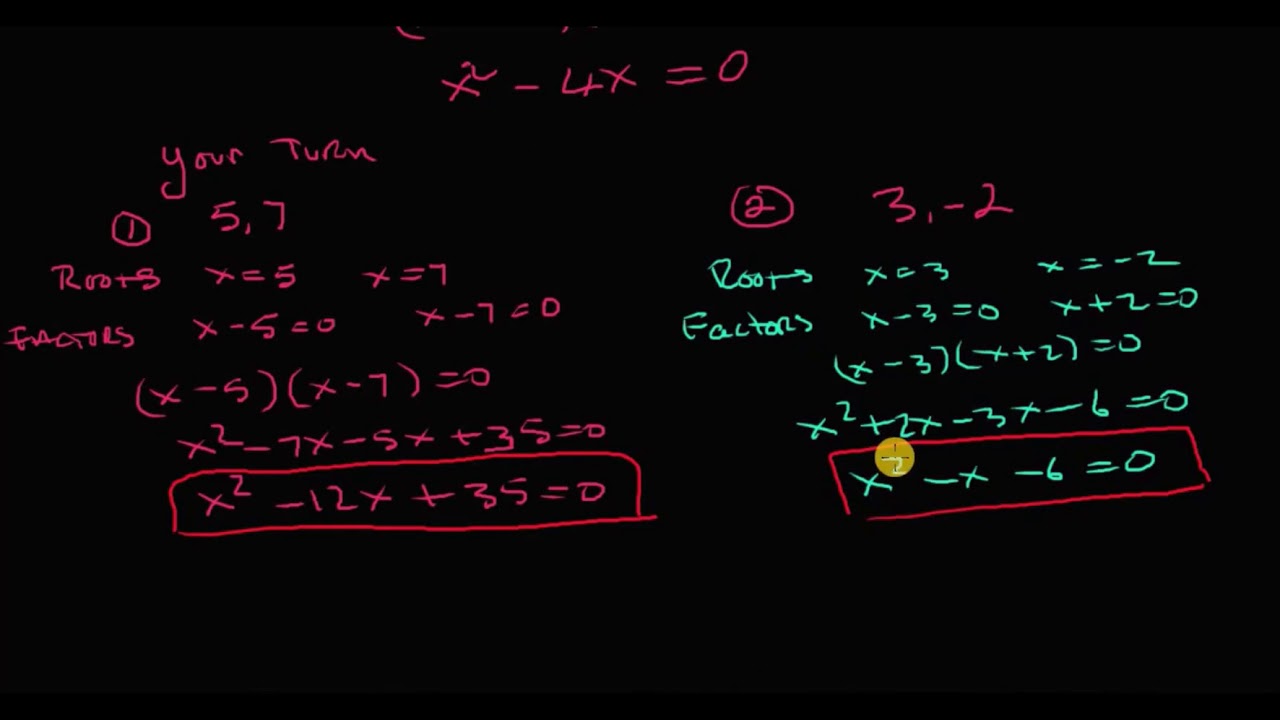 x² - 4x = 0
Your Turn
① 5, 7
Roots x = 5 x = 7
FACTORS x - 5 = 0 x - 7 = 0
(x - 5)(x - 7) = 0
x² - 7x - 5x + 35 = 0
x² - 12x + 35 = 0
② 3, -2
Roots x = 3 x = -2
Factors x - 3 = 0 x + 2 = 0
(x - 3)(x + 2) = 0
x² + 2x - 3x - 6 = 0
x² - x - 6 = 0